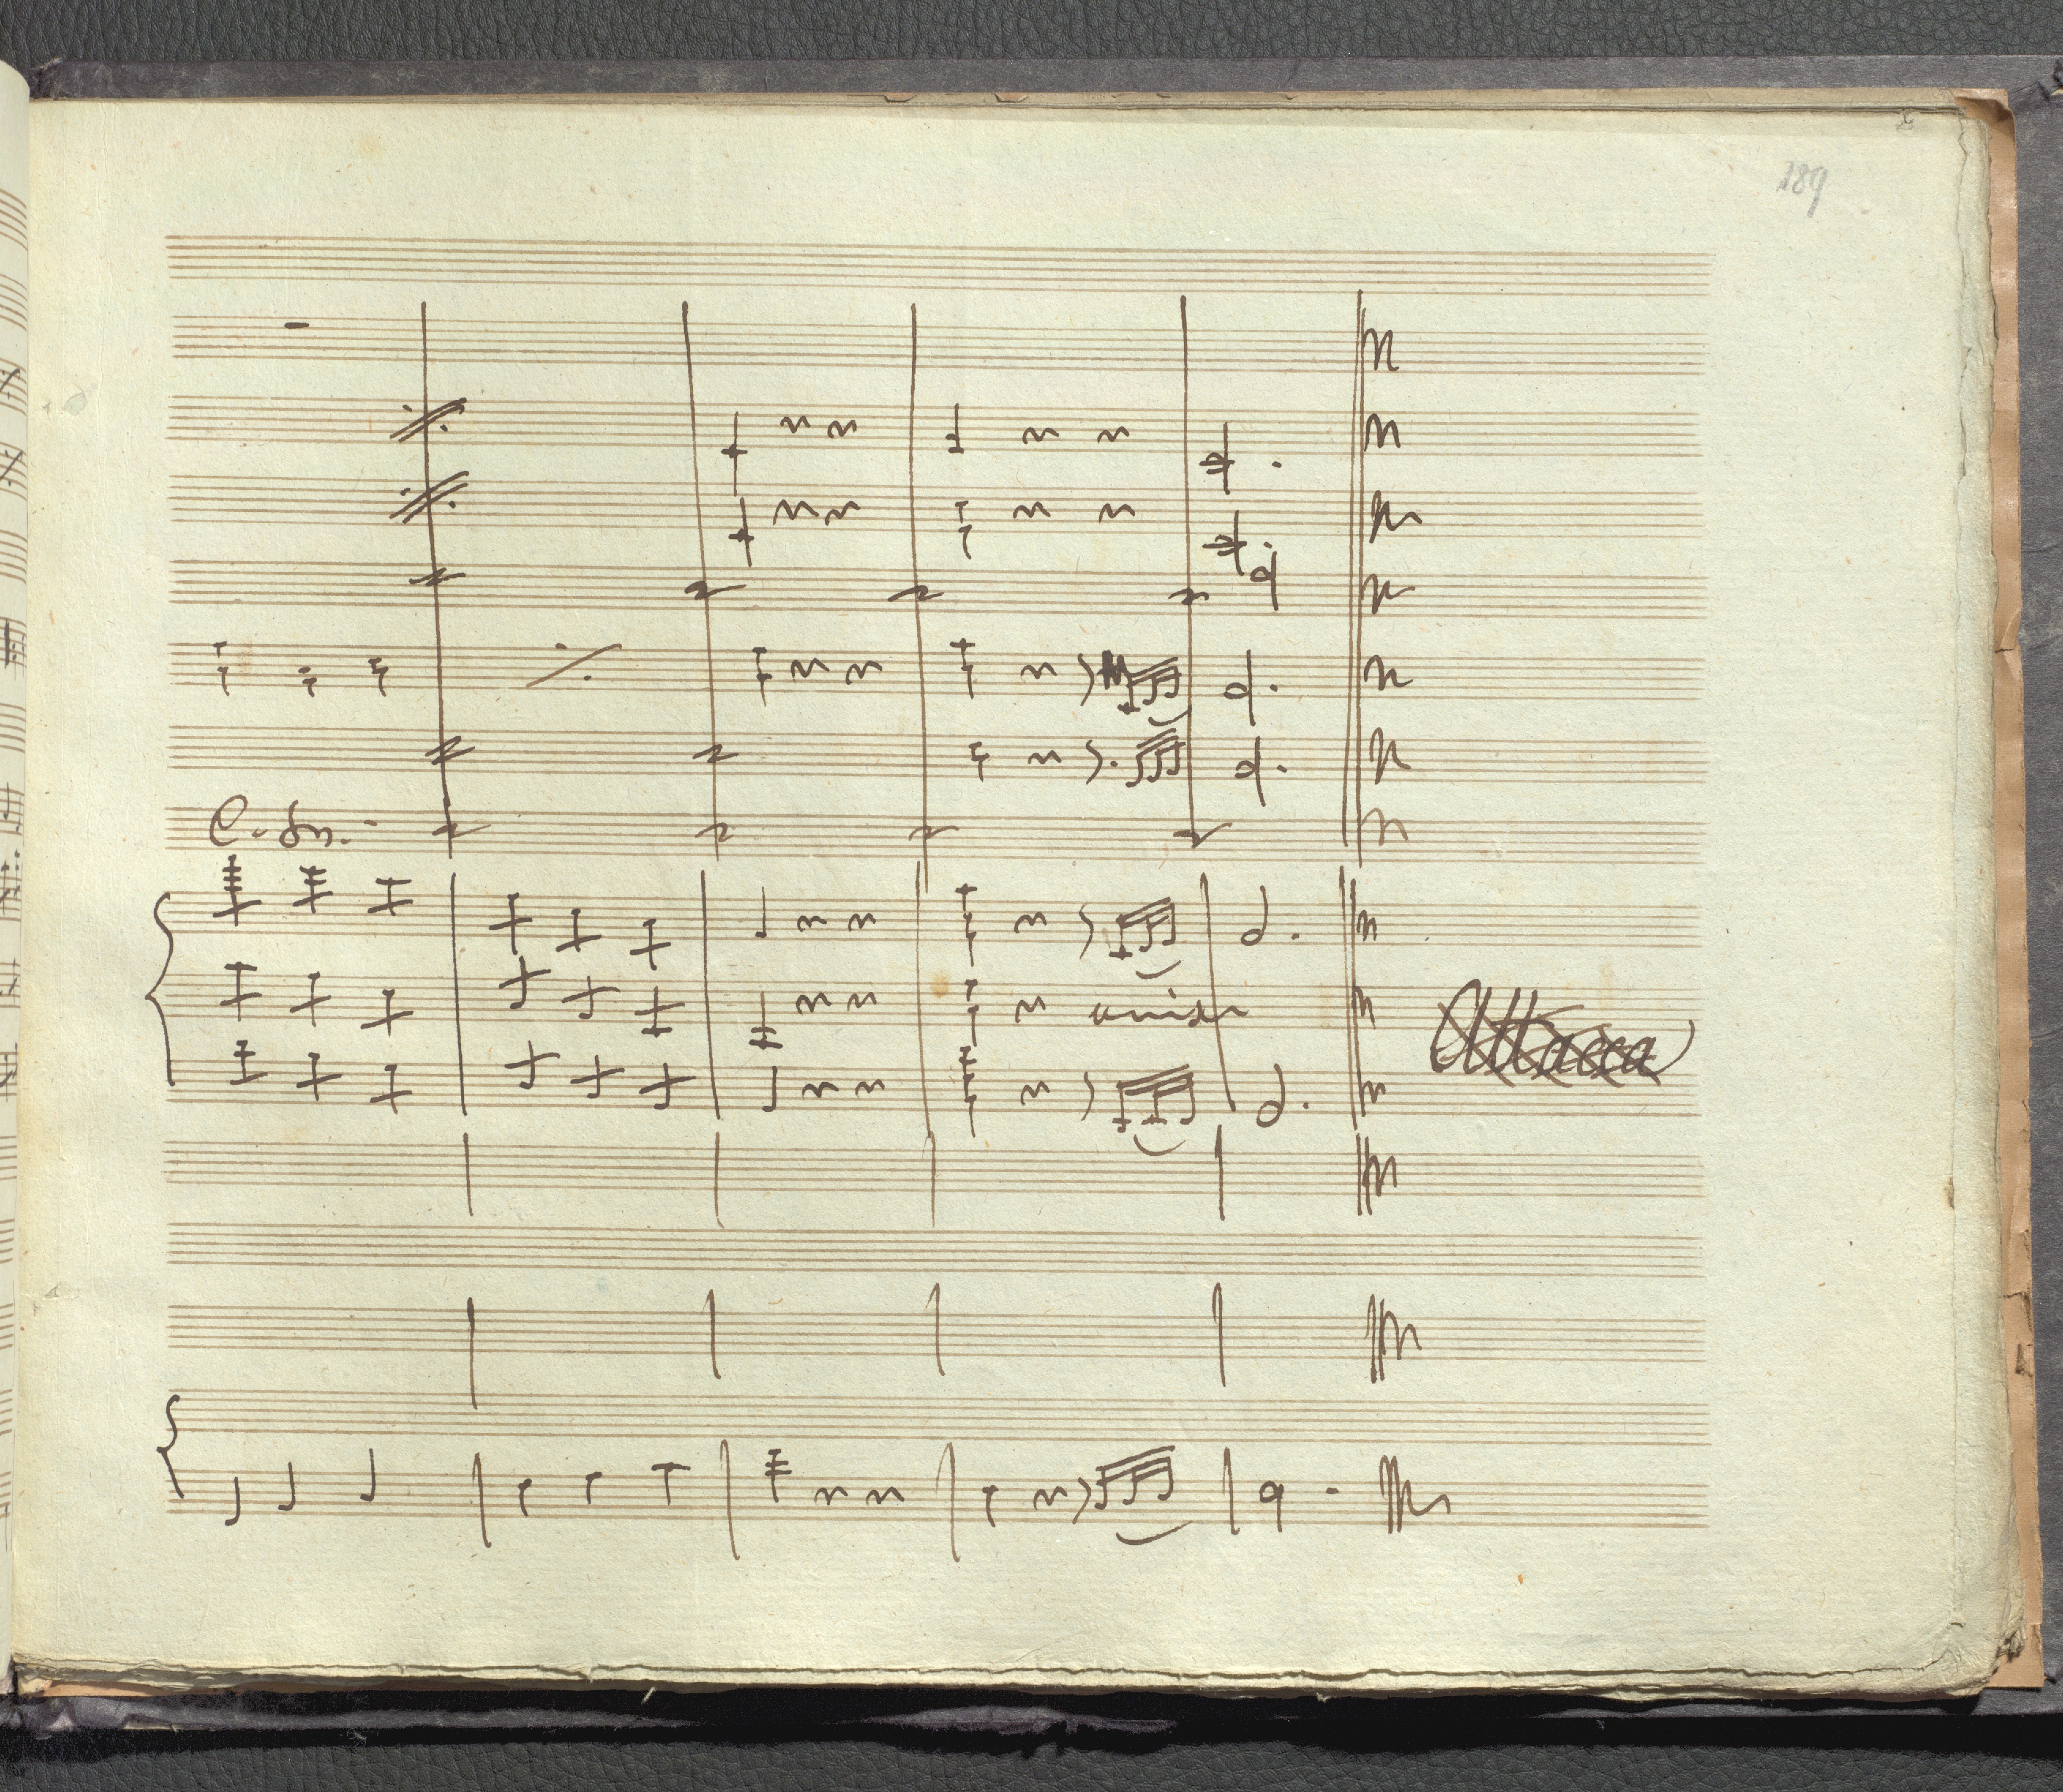 189
C. Sn.
unis
Attacca